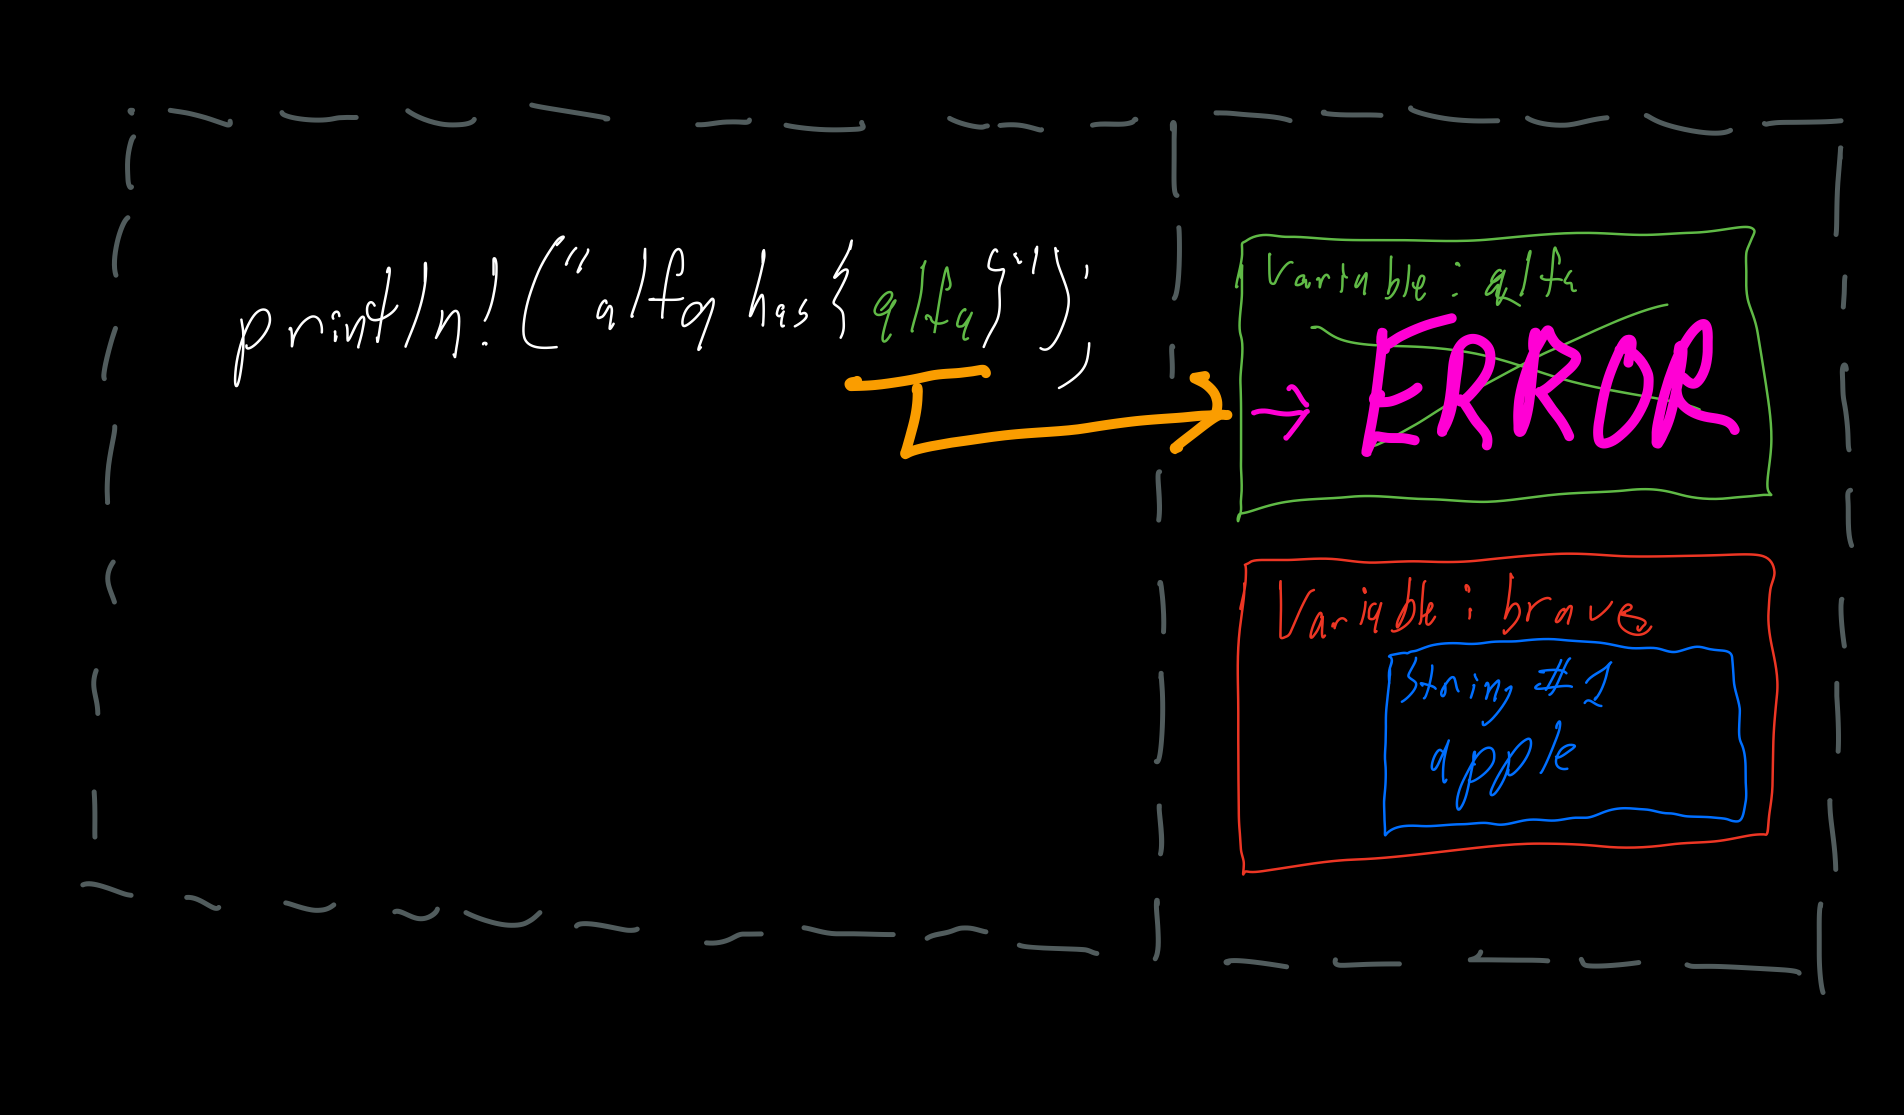 println!("alfa has {alfa}");
Variable : alfa
ERROR
Variable : brave
String #1
apple